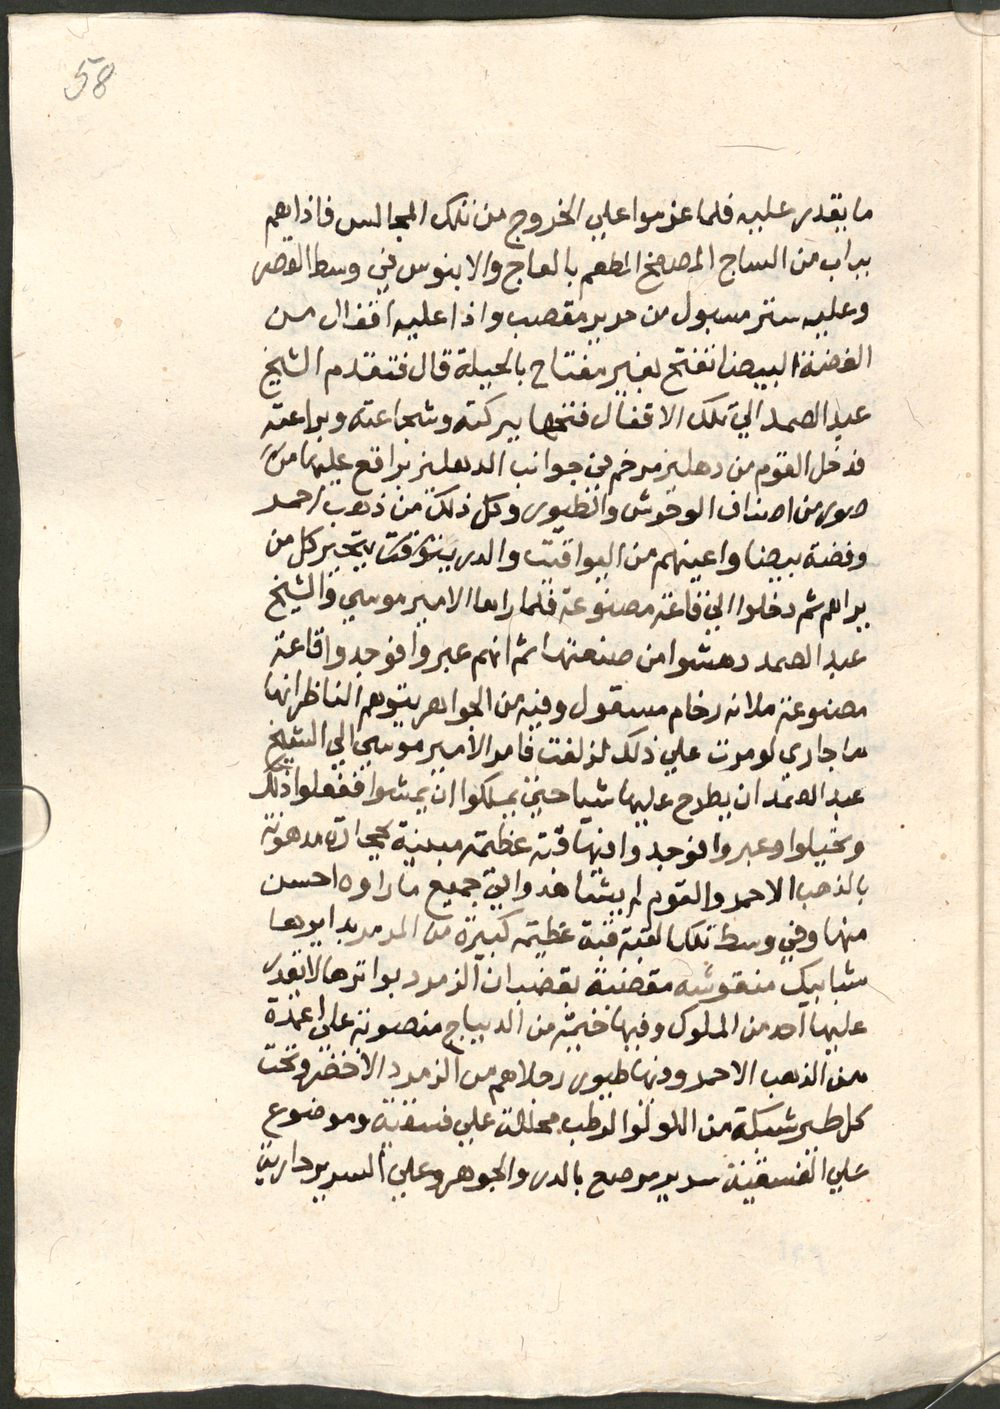 58
ما يقدر عليه فلما عزموا علي الخروج من تلك المجالس فاذا هم
بباب من الساج المصفح المطعم بالعاج والابنوس في وسط القصر
وعليه ستر مسبول من حرير مقصب واذا عليه اقفال من
الفضة البيضا تفتح بغير مفتاح بالحيلة قال فتقدم الشيخ
عبد الصمد الي تلك الاقفال ففتحها ببركته وشجاعته وبراعته
فدخل القوم من دهليز مرخم في جوانب الدهليز براقع عليها من
صور من اصناف الوحوش والطيور وكل ذلك من ذهب احمر
وفضة بيضا واعينهم من اليواقيت والدر يتحير كل من
يراهم ثم دخلوا الي قاعة مصنوعة فلما راها الامير موسي والشيخ
عبد الصمد دهشوا من صنعتها ثم انهم عبروا فوجدوا قاعة
مصنوعة ملانه رخام مسقول وفيه من الجواهر يتوهم الناظر انها
ما جاري لو مرت علي ذلك لزلقت فامر الامير موسي الي الشيخ
عبد الصمد ان يطرح عليها شيا حتي يملكوا ان يمشوا ففعلوا ذلك
وتحيلوا وعبروا فوجدوا فيها قبة عظيمة مبنية بحجارة مدهونة
بالذهب الاحمر والقوم لم يشاهدوا في جميع ما راوه احسن
منها وفي وسط تلك القبة قبة عظيمة كبيرة من المرمر بدايرها
شبابيك منقوشه مقصبة بقضبان الزمرد بواترها لا يقدر
عليها احد من الملوك وفيها خيمة من الديباج منصوبة علي اعمدة
من الذهب الاحمر وفيها طيور رجلاهم من الزمرد الاخضر وتحت
كل طير شبكة من اللولوا الرطب مجللة علي فسقية وموضوع
علي الفسقية سرير مرصع بالدر والجوهر وعلي السرير جارية